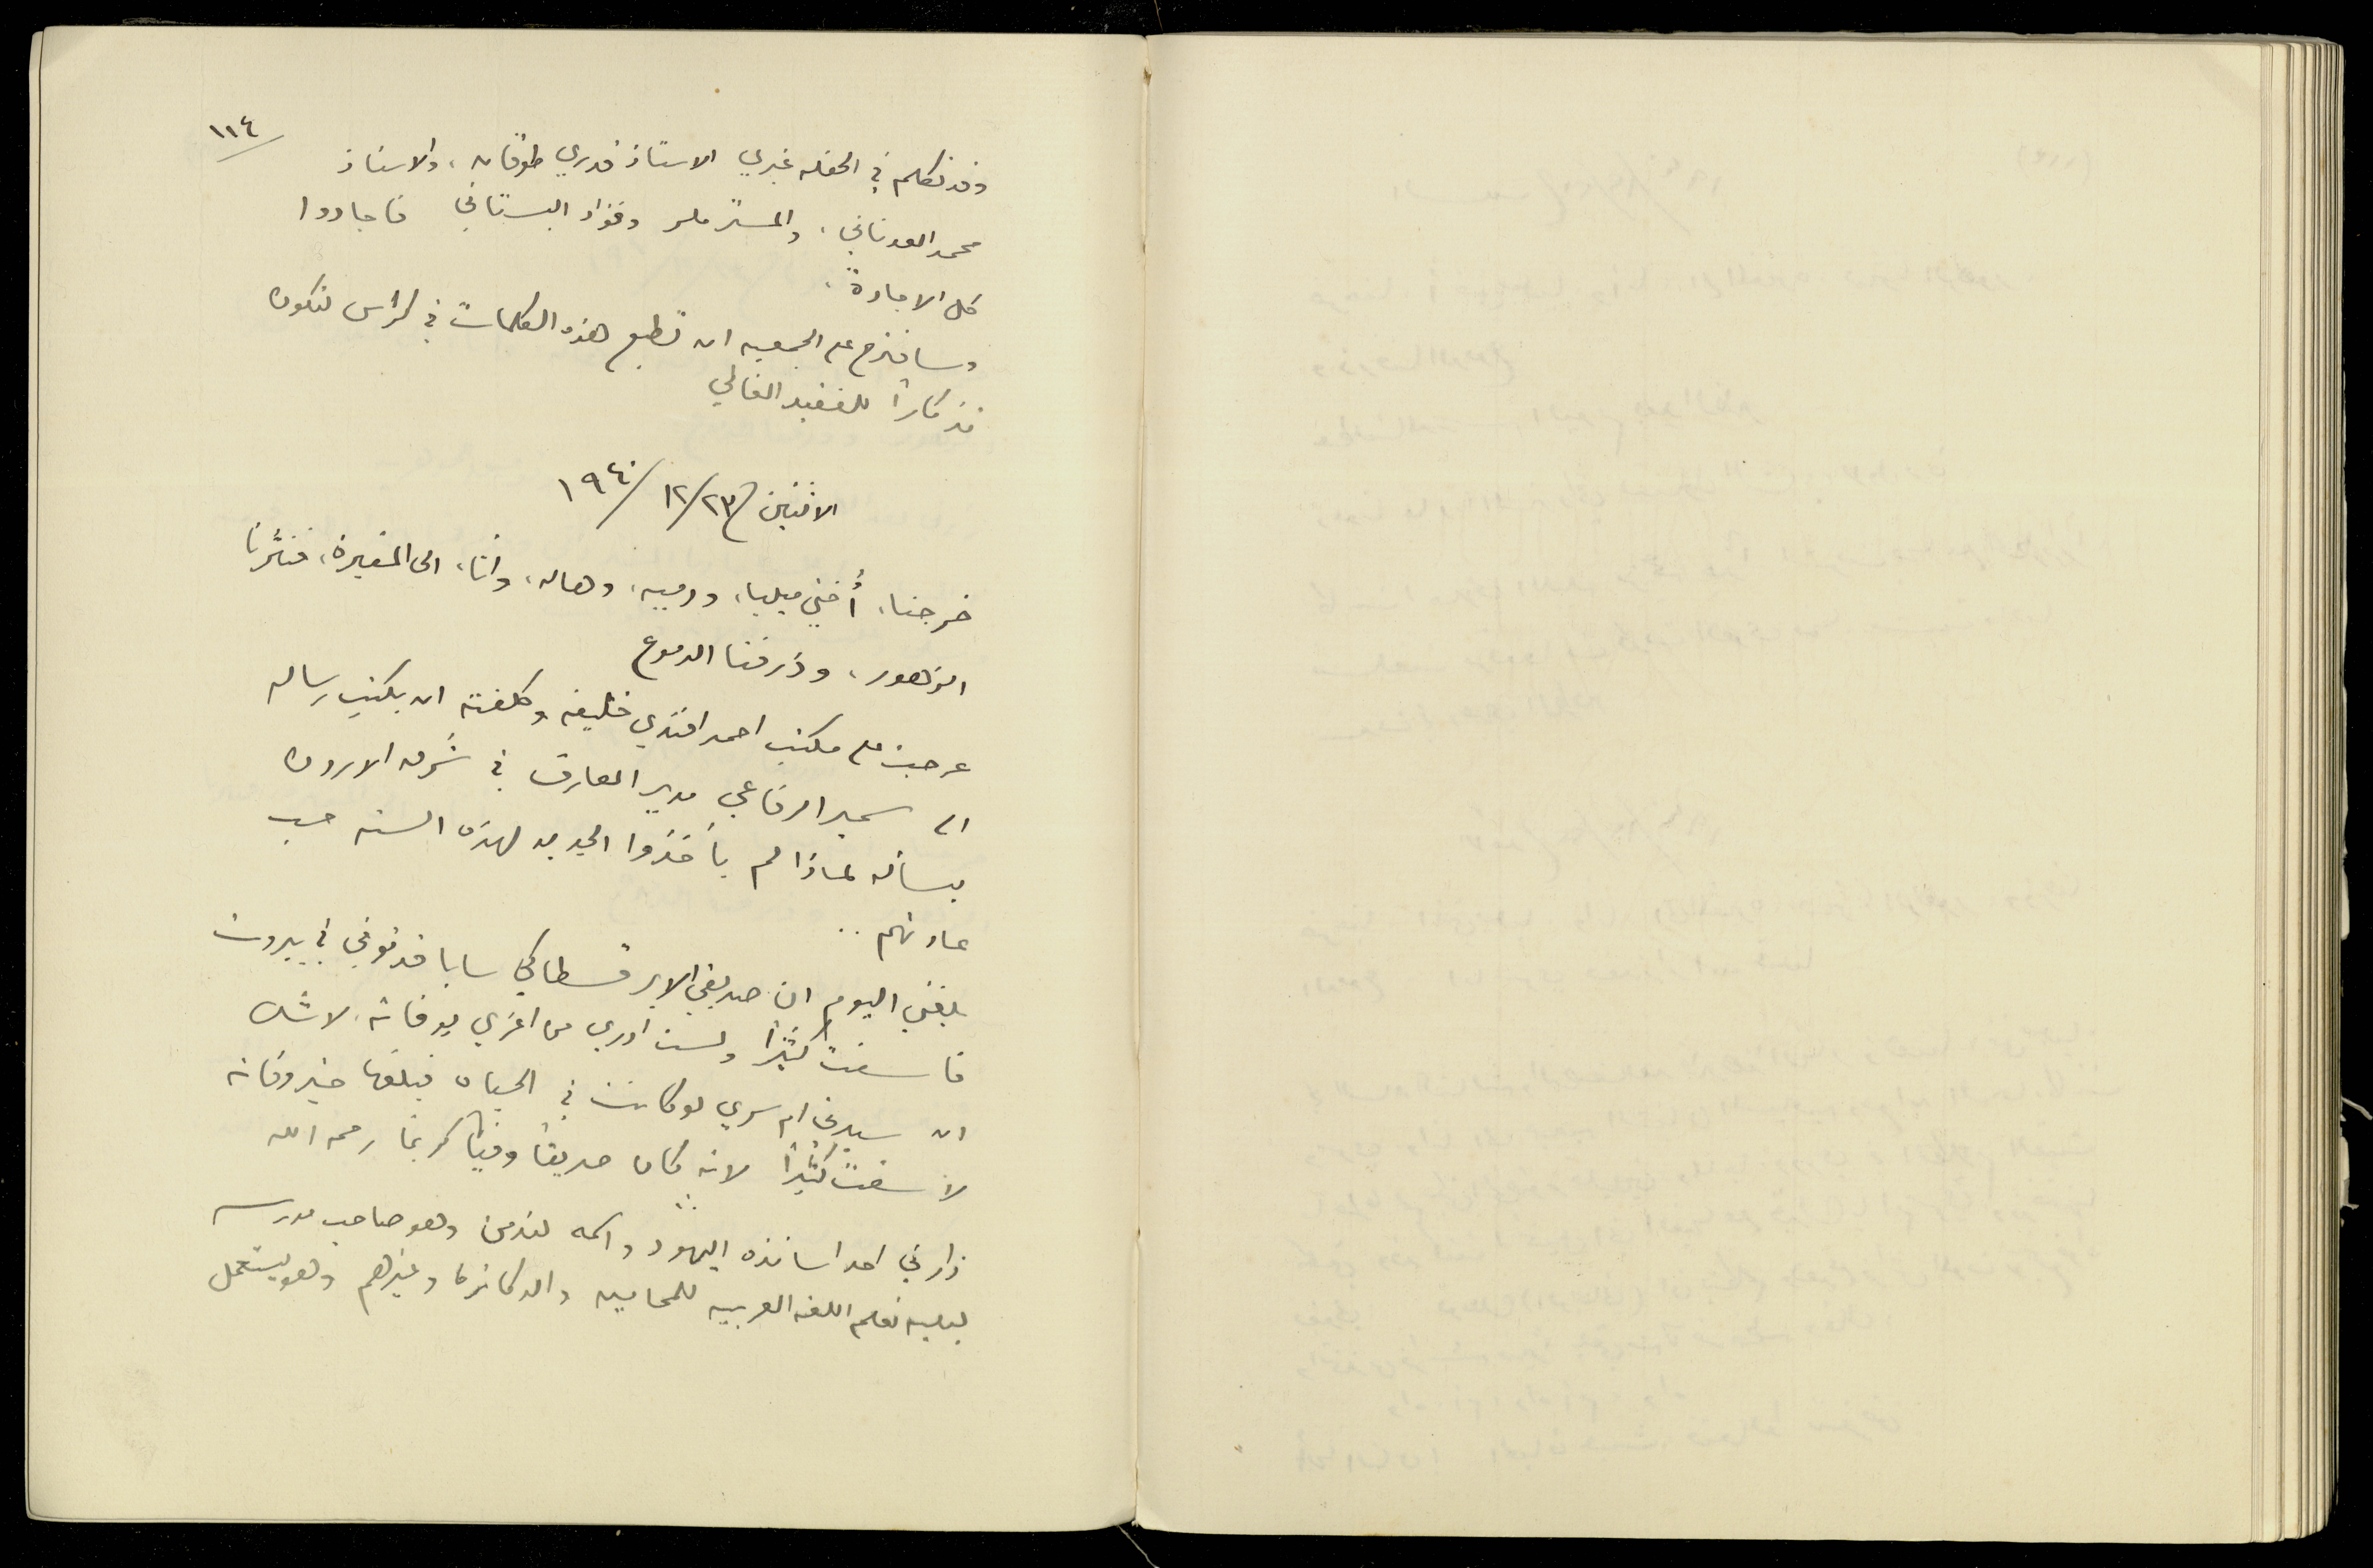 ١١٤
وقد تكلم في الحفله غيري الاستاذ قدري طوقان، والاستاذ
محمد العدناني، والمستر ملر وفؤاد البستاني فاجادوا
كل الاجادة.
وساقترح على الجمعيه ان تطبع هذه الكلمات في كراس لتكون
تذكاراً للفقيد الغالي
الاثنين ٢٣/١٢/١٩٤٠
خرجنا، أختي ميليا، ودميه، وهاله، وأنا، الى المقبرة، فنثرنا
الزهور، وذرفنا الدموع
عرجت على مكتب احمد افندي خليفه وكلفته ان يكتب رساله
الى سمير الرفاعي مدير المعارف في شرق الاردن
يسأله لماذا لم يأخذوا الجديد لهذه السنه حسب
عادتهم ..
بلغني اليوم ان صديقي الابر قسطاكي سابا قد توفي في بيروت
فاسفت كثيراً ولست أدري من اعزي بوفاته. لا شك
ان سيدتي ام سري لو كانت في الحياة فبلغها خبر وفاته
لاسفت كثيراً لانه كان صديقاً وفياً كريما رحمه الله
زارني احد اساتذه اليهود واسمه لندمن وهو صاحب مدرسه
ليليه تعلم اللغه العربيه للمحاميين والدكاتره وغيرهم وهو يستعمل